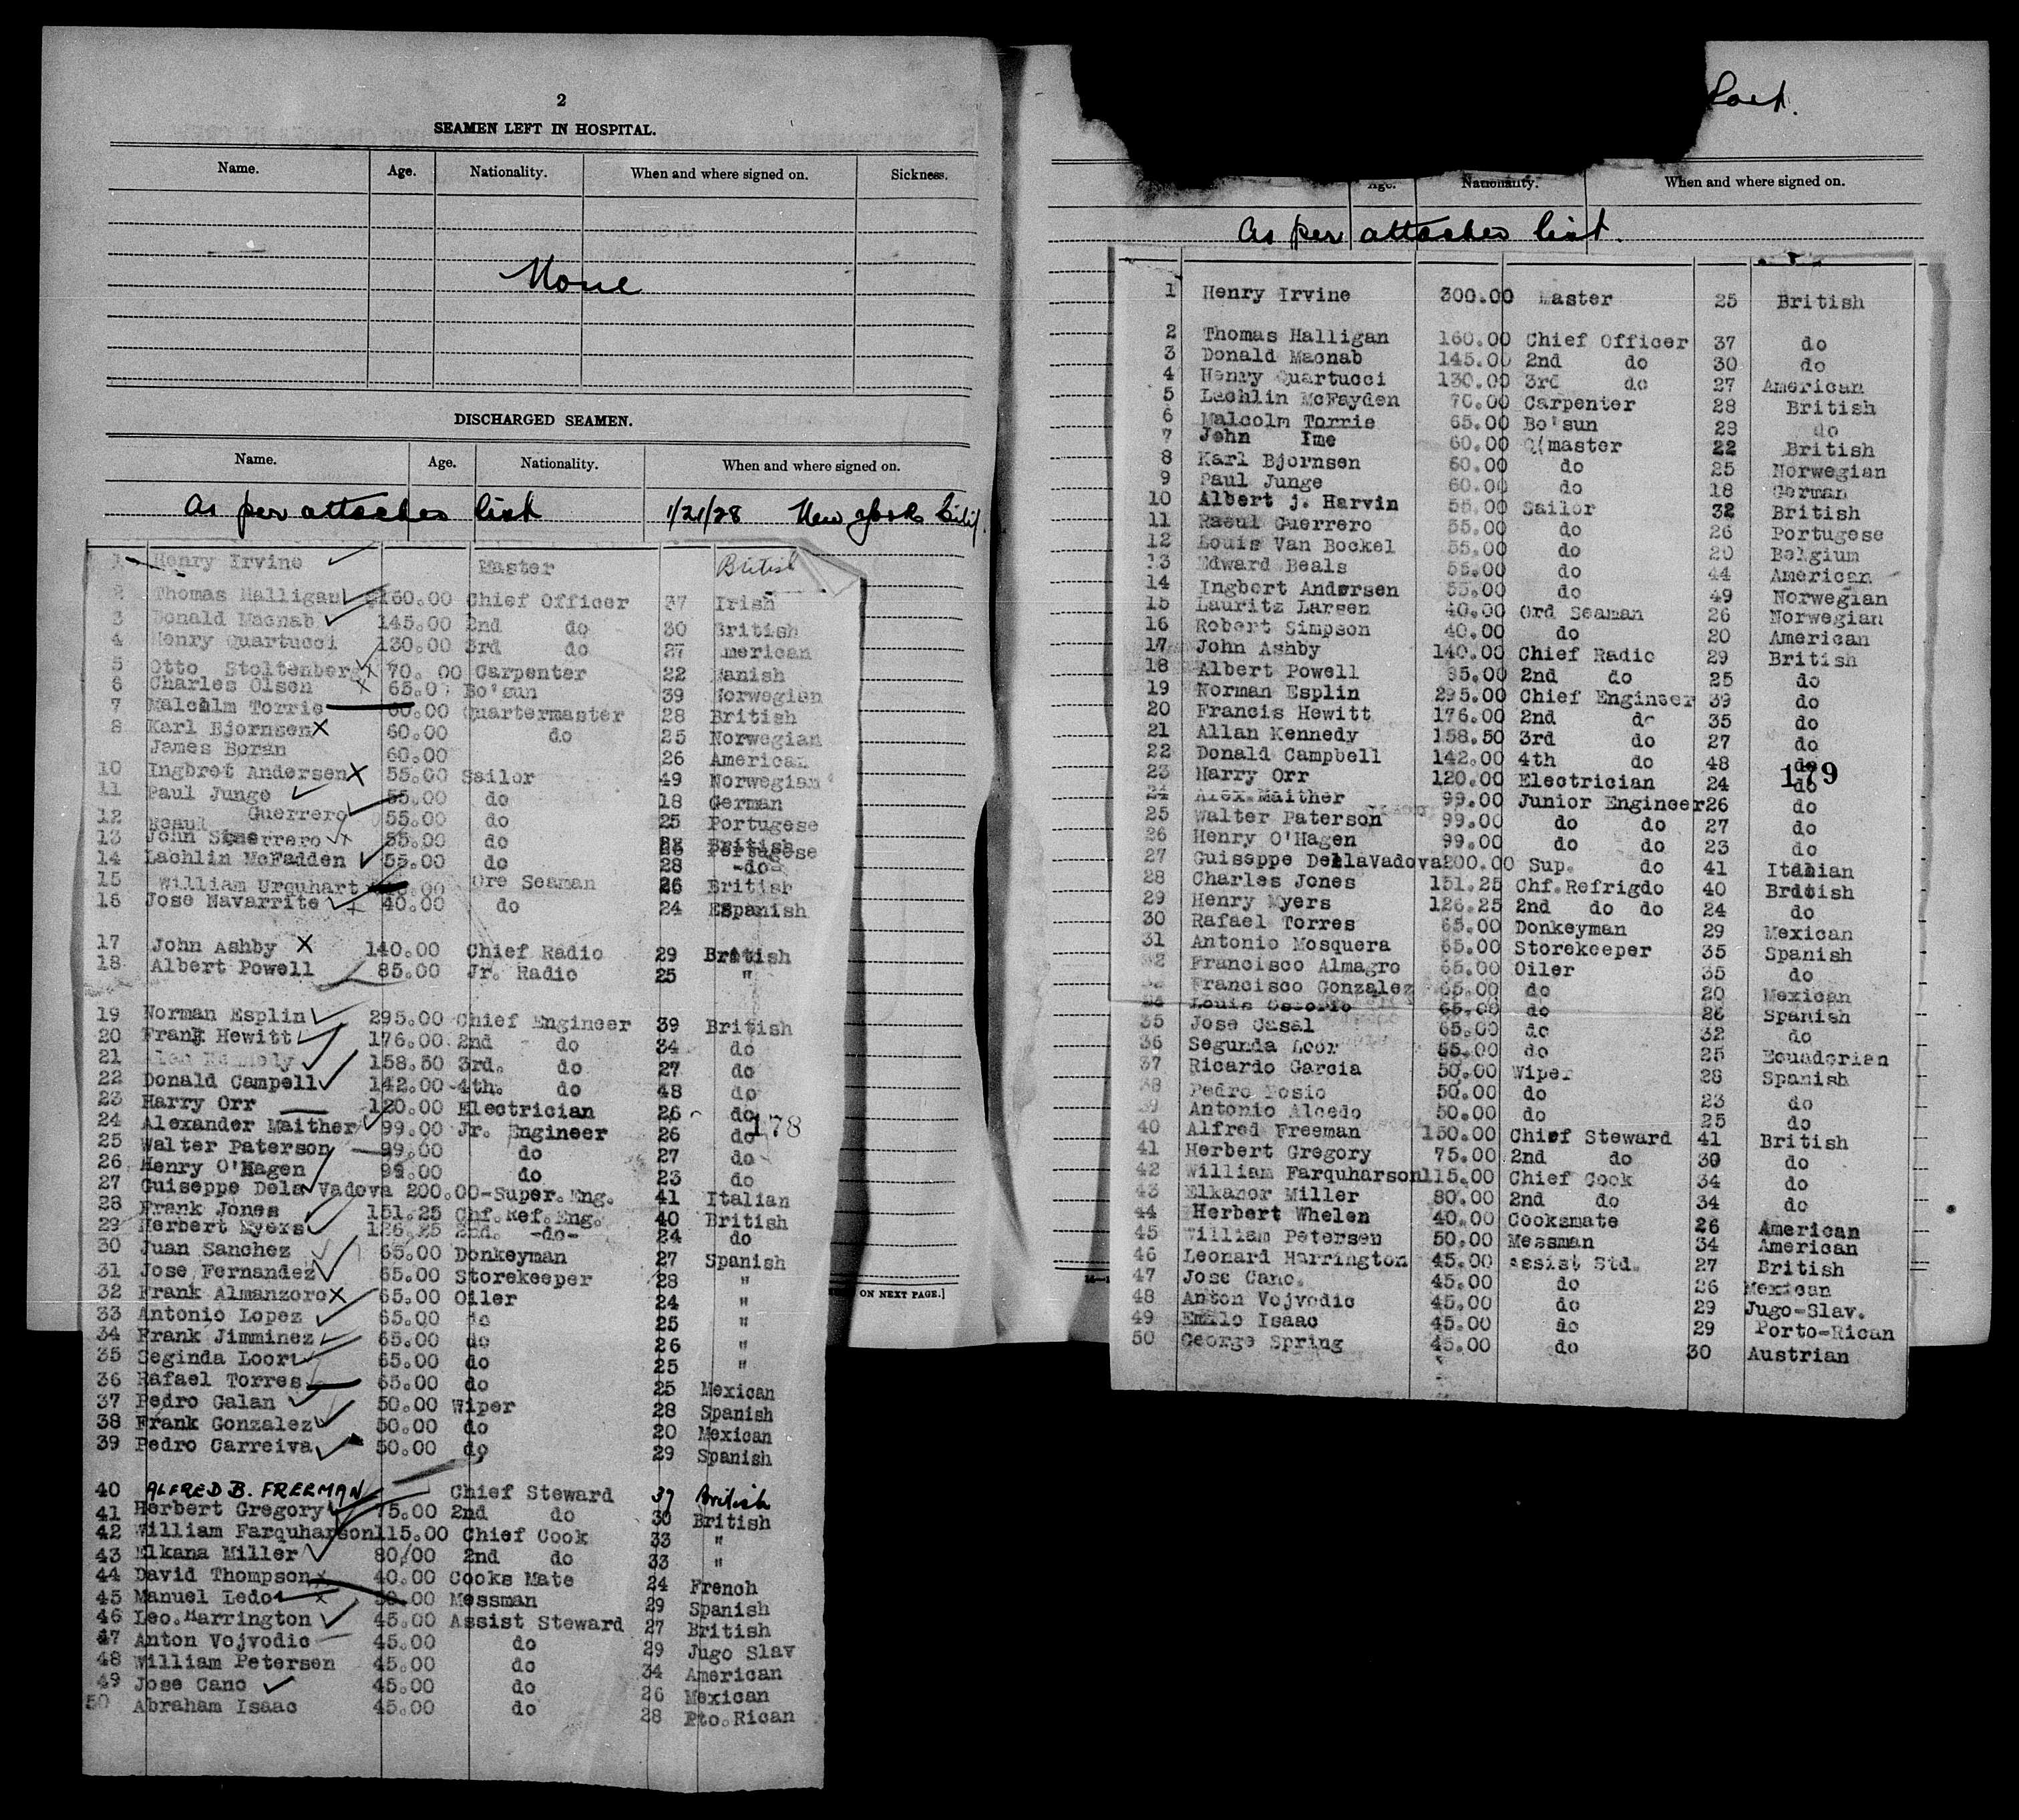 2
SEAMEN LEFT IN HOSPITAL.
Name. Age. Nationality. When and where signed on. Sickness.
None
DISCHARGED SEAMEN.
Name. Age. Nationality. When and where signed on.
As per attached list 1/21/28 New York
1 Henry Irvine Master British
2 Thomas Halligan 160.00 Chief Officer 37 Irish
3 Donald Macnab 145.00 2nd do 30 British
4 Henry Quartucci 130.00 3rd do 27 American
5 Otto Stoltenberg 70.00 Carpenter 22 Danish
6 Charles Olsen X 65.0 Bo'sun 39 Norwegian
7 Malcolm Torrie 60.00 Quartermaster 28 British
8 Karl Bjornsen X 60.00 do 25 Norwegian
James Boran 60.00 26 American
10 Ingbret Andersen X 55.00 Sailor 49 Norwegian
11 Paul Junge 55.00 do 18 German
12 Guerrero 55.00 do 25 Portugese
13 John 55.00 do British
14 Lachlin McFadden 55.00 do 28 -do-
15 William Urquhart Ore Seaman 26 British
16 Jose Navarrite 40.00 do 24 Espanish
17 John Ashby X 140.00 Chief Radio 29 British
18 Albert Powell 85.00 Jr. Radio 25 "
19 Norman Esplin 295.00 Chief Engineer 39 British
20 Frank Hewitt 176.00 2nd do 34 do
21 158.50 3rd. do 27 do
22 Donald Campell 142.00 4th. do 48 do
23 Harry Orr 120.00 Electrician 26 do
24 Alexander Maither 99.00 Jr. Engineer 26 do
178
25 Walter Paterson 99.00 do 27 do
26 Henry O'Hagen 99.00 do 23 do
27 Guiseppe Dela Vadova 200.00-Super.Eng. 41 Italian
28 Frank Jones 151.25 Chf.Ref.Eng. 40 British
29 Herbert Myers 126.25 2nd. -do- 24 do
30 Juan Sanchez 65.00 Donkeyman 27 Spanish
31 Jose Fernandez 65.00 Storekeeper 28 "
32 Frank Almanzoro X 65.00 Oiler 24 "
33 Antonio Lopez 65.00 do 25 "
34 Frank Jimminez 65.00 do 26 "
35 Seginda Loor 65.00 do 25 "
36 Rafael Torres 65.00 do 25 Mexican
37 Pedro Galan 50.00 Wiper 28 Spanish
38 Frank Gonzalez 50.00 do 20 Mexican
39 Pedro Carreiva 50.00 do 29 Spanish
40 ALFRED B. FREEMAN Chief Steward 39 British
41 Herbert Gregory 75.00 2nd do 30 British
42 William Farquharson115.00 Chief Cook 33 "
43 Elkana Miller 80/00 2nd do 33 "
44 David Thompson x 40.00 Cooks Mate 24 French
45 Manuel Ledo x 50.00 Messman 29 Spanish
46 Leo.Harrington 45.00 Assist Steward 27 British
47 Anton Vojvodic 45.00 do 29 Jugo Slav
48 William Petersen 45.00 do 34 American
49 Jose Cano 45.00 do 26 Mexican
50 Abraham Isaac 45.00 do 28 Pto.Rican
ON NEXT PAGE.]
Age. Nationality. When and where signed on.
As per attached list.
1 Henry Irvine 300.00 Master 25 British
2 Thomas Halligan 160.00 Chief Officer 37 do
3 Donald Macnab 145.00 2nd do 30 do
4 Henry Quartucci 130.00 3rd do 27 American
5 Lachlin McFayden 70.00 Carpenter 28 British
6 Malcolm Torrie 65.00 Bo'sun 28 do
7 John Ime 60.00 Q/master 22 British
8 Karl Bjornsen 60.00 do 25 Norwegian
9 Paul Junge 60.00 do 18 German
10 Albert j. Harvin 55.00 Sailor 32 British
11 Raoul Guerrero 55.00 do 26 Portugese
12 Louis Van Bockel 55.00 do 20 Belgium
13 Edward Beals 55.00 do 44 American
14 Ingbert Andersen 55.00 do 49 Norwegian
15 Lauritz Larsen 40.00 Ord Seaman 26 Norwegian
16 Robert Simpson 40.00 do 20 American
17 John Ashby 140.00 Chief Radio 29 British
18 Albert Powell 85.00 2nd do 25 do
19 Norman Esplin 295.00 Chief Engineer 39 do
20 Francis Hewitt 176.00 2nd do 35 do
21 Allan Kennedy 158.50 3rd do 27 do
22 Donald Campbell 142.00 4th do 48 do
179
23 Harry Orr 120.00 Electrician 24 do
24 Alex.Maither 99.00 Junior Engineer26 do
25 Walter Paterson 99.00 do do 27 do
26 Henry O'Hagen 99.00 do do 23 do
27 Guiseppe DellaVadova200.00 Sup. do 41 Italian
28 Charles Jones 151.25 Chf.Refrigdo 40 British
29 Henry Myers 126.25 2nd do do 24 do
30 Rafael Torres 65.00 Donkeyman 29 Mexican
31 Antonio Mosquera 65.00 Storekeeper 35 Spanish
32 Francisco Almagro 65.00 Oiler 35 do
Francisco Gonzalez 65.00 do 20 Mexican
Louis Osorio 65.00 do 26 Spanish
35 Jose Casal 65.00 do 32 do
36 Segunda Loor 65.00 do 25 Ecuadorian
37 Ricardo Garcia 50.00 Wiper 28 Spanish
38 Pedro Rosio 50.00 do 23 do
39 Antonio Alcedo 50.00 do 25 do
40 Alfred Freeman 150.00 Chief Steward 41 British
41 Herbert Gregory 75.00 2nd do 30 do
42 William Farquharson115.00 Chief Cook 34 do
43 Elkanor Miller 80.00 2nd do 34 do
44 Herbert Whelen 40.00 Cooksmate 26 American
45 William Petersen 50.00 Messman 34 American
46 Leonard Harrington 45.00 Assist Std. 27 British
47 Jose Cano. 45.00 do 26 Mexican
48 Anton Vojvodic 45.00 do 29 Jugo-Slav.
49 Emilo Isaac 45.00 do 29 Porto-Rican
50 George Spring 45.00 do 30 Austrian